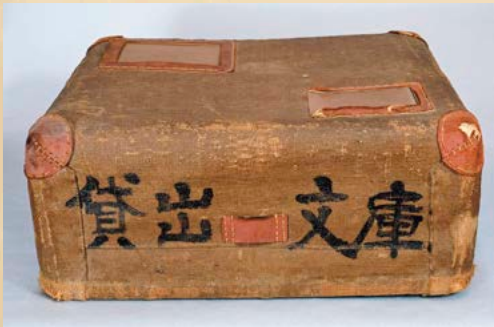 貸出文庫